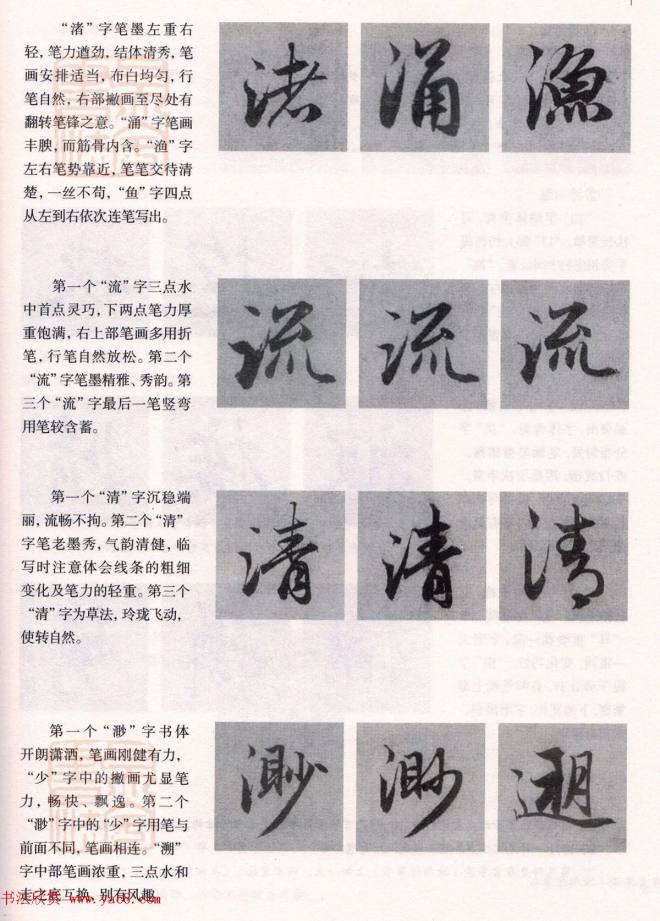 “渚”字笔墨左重右
轻，笔力遒劲，结体清秀，笔
画安排适当，布白均匀，行
笔自然，右部撇画至尽处有
翻转笔锋之意。“涌”字笔画
丰腴，而筋骨内含。“渔”字
左右笔势靠近，笔笔交待清
楚，一丝不苟，“鱼”字四点
从左到右依次连笔写出。
渚 涌 渔
第一个“流”字三点水
中首点灵巧，下两点笔力厚
重饱满，右上部笔画多用折
笔，行笔自然放松。第二个
“流”字笔墨精雅、秀韵。第
三个“流”字最后一笔竖弯
用笔较含蓄。
流 流 流
第一个“清”字沉稳端
丽，流畅不拘。第二个“清”
字笔老墨秀，气韵清健，临
写时注意体会线条的粗细
变化及笔力的轻重。第三个
“清”字为草法，玲珑飞动，
使转自然。
清 清 清
第一个“渺”字书体
开朗潇洒，笔画刚健有力，
“少”字中的撇画尤显笔
力，畅快、飘逸。第二个
“渺”字中的“少”字用笔与
前面不同，笔画相连。“溯”
字中部笔画浓重，三点水和
走之底互换，别有风趣。
渺 渺 遡
书法欣赏 www.yac8.com